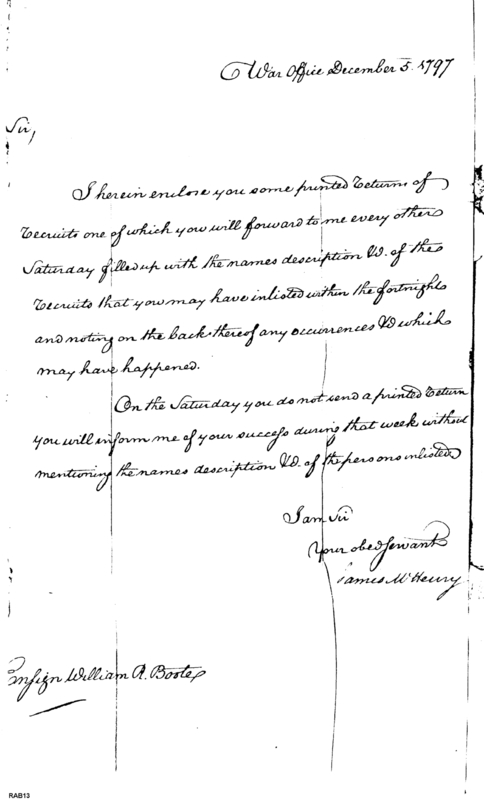 War Office December 5. 1797
Sir,
I herein enclose you some printed Returns of
Recruits one of which you will forward to me every other
Saturday filled up with the names description &c. of the
Recruits that you may have inlisted within the fortnight
and noting on the back thereof any occurrences &c which
may have happened.
On the Saturday you do not send a printed Return
you will inform me of your success during that week without
mentioning the names description &c. of the persons inlisted
I am Sir
Your obed Servant
James McHenry
Ensign William R. Boote
RAB13